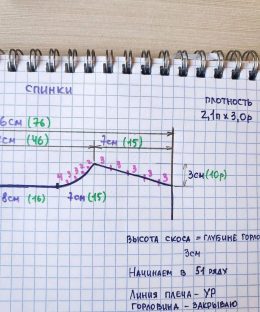 СПИНКИ
ПЛОТНОСТЬ
2,1п х 3,0р
6см (76)
см (46)
7см (15)
3 3 3 3 3
4 3 3 3 2
3см (10р)
8см (16)
7см (15)
ВЫСОТА СКОСА = ГЛУБИНЕ ГОРЛО
3см
НАЧИНАЕМ В 51 РЯДУ
ЛИНИЯ ПЛЕЧА - УР
ГОРЛОВИНА - ЗАКРЫВАЮ